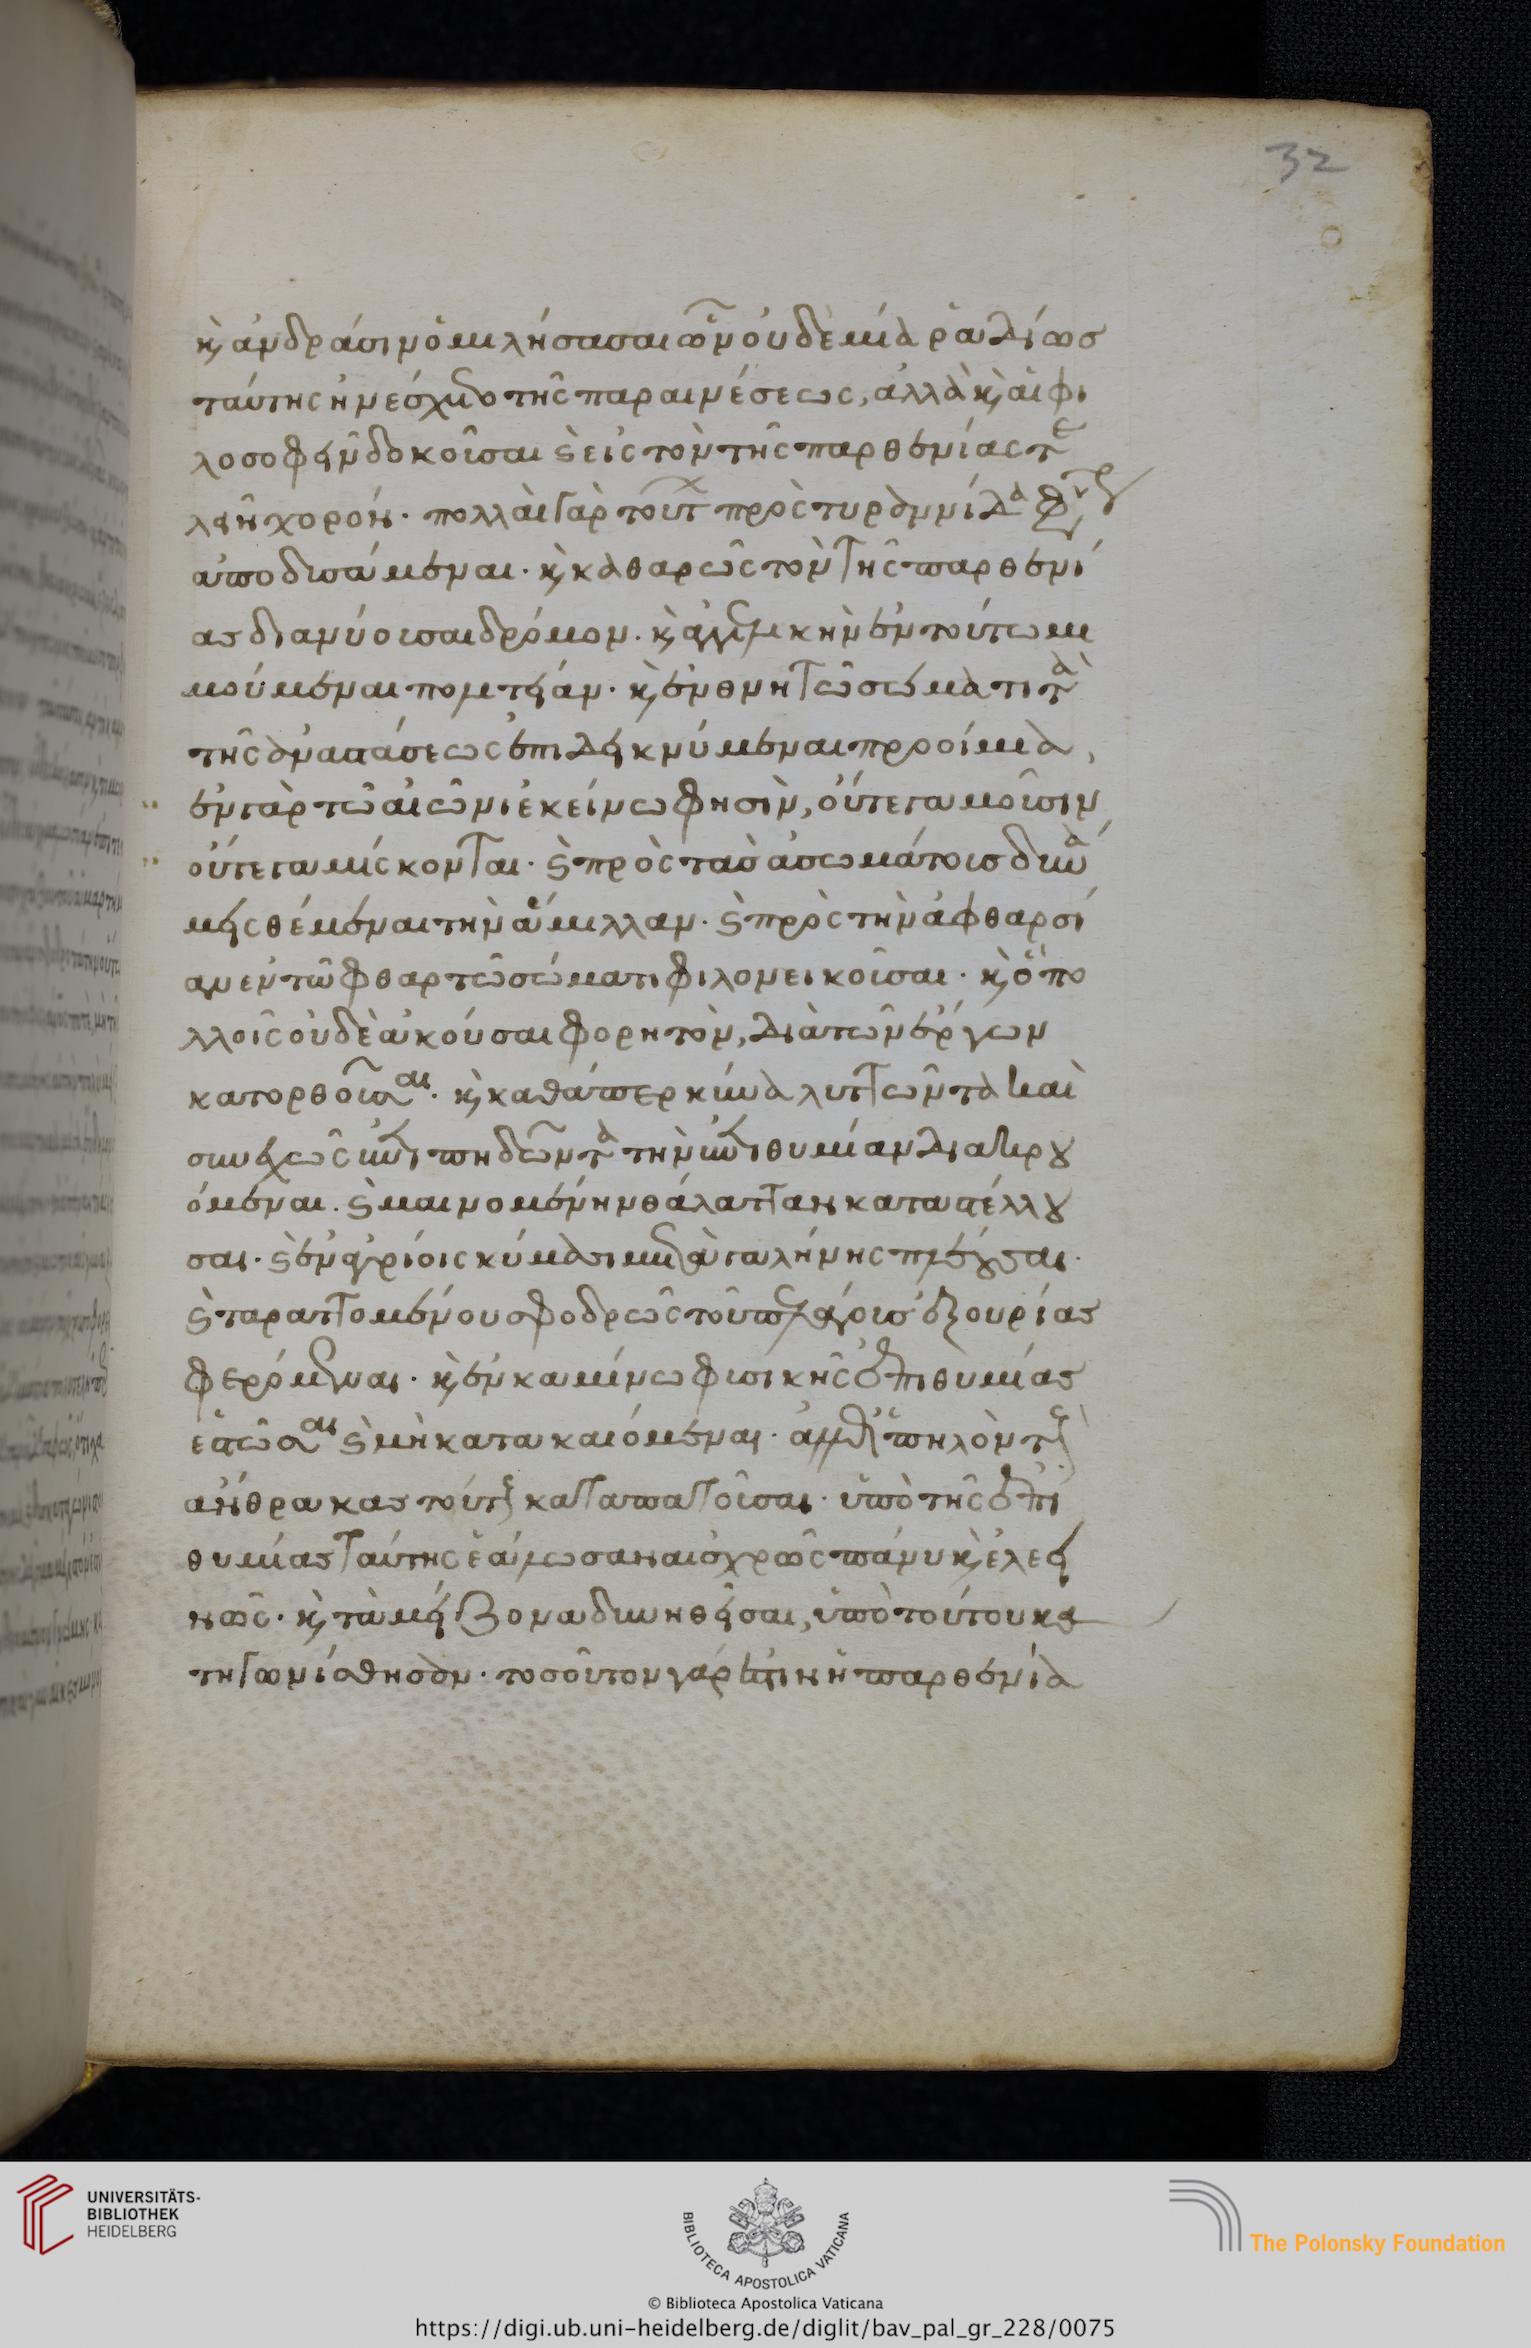 32
κ(αὶ) ἀνδράσιν ὁμιλήσασαι ὧν οὐδεμία ῥαδίως
ταύτης ἠνέσχετο τῆς παραινέσεως, ἀλλὰ κ(αὶ) αἱ φι
λοσοφεῖν δοκοῦσαι κ(αὶ) εἰς τὸν τῆς παρθενίας τε
λεῖν χορόν. πολλαὶ γὰρ τούτων πρὸς τυραννίδα
ἀποδυσάμεναι. κ(αὶ) καθαρῶς τὸν τῆς παρθενί
ας διανύουσαι δρόμον. κ(αὶ) ἀγγελικὴν ἐν τούτω μι
μούμεναι πολιτείαν. κ(αὶ) ἐν θνητῶ σώματι τὰ
τῆς ἀναστάσεως ἐπιδεικνύμεναι προοίμια,
ἐν γὰρ τῶ αἰῶνι ἐκείνω φησὶν, οὔτε γαμοῦσιν
οὔτε γαμίσκονται. κ(αὶ) πρὸς τὰς ἀσωμάτους δυνά
μεις θέμεναι τὴν ἅμιλλαν. κ(αὶ) πρὸς τὴν ἀφθαρσί
αν ἐν τῶ φθαρτῶ σώματι φιλονεικοῦσαι. κ(αὶ) ὃ πο
λλοῖς οὐδὲ ἀκοῦσαι φορητὸν, διὰ τῶν ἔργων
κατορθοῦσαι. κ(αὶ) καθάπερ κύνα λυττῶντα καὶ
συνεχῶς ἐπιπηδῶντα τὴν ἐπιθυμίαν διακρου
όμεναι. κ(αὶ) μαινομένην θάλατταν καταστέλλου
σαι. κ(αὶ) ἐν ἀγρίοις κύμασι μετὰ γαλήνης πλέουσαι.
κ(αὶ) ταραττομένου σφοδρῶς τοῦ πελάγους ἐξ οὐρίας
φερόμεναι. κ(αὶ) ἐν καμίνω φυσικῆς ἐπιθυμίας
ἑστῶσαι κ(αὶ) μὴ κατακαιόμεναι. ἀλλ' ὡς πηλὸν τοὺς
ἄνθρακας τούτους καταπατοῦσαι. ὑπὸ τῆς ἐπι
θυμίας ταύτης ἑάλωσαν αἰσχρῶς πάνυ κ(αὶ) ἐλεει
νῶς. κ(αὶ) τὰ μείζονα δυνηθεῖσαι, ὑπὸ τούτου κα
τηγωνίσθησαν. τοσοῦτον γάρ ἐστιν ἡ παρθενία
UNIVERSITÄTS-
BIBLIOTHEK
HEIDELBERG
BIBLIOTECA APOSTOLICA VATICANA
The Polonsky Foundation
© Biblioteca Apostolica Vaticana
https://digi.ub.uni-heidelberg.de/diglit/bav_pal_gr_228/0075